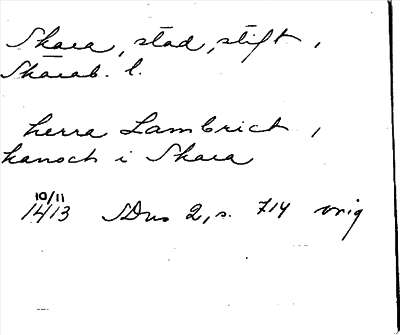 Skara, stad, stift,
Skarab. l.
herra Lambrich,
kanoch i Skara
10/11
1413 SDns 2, s. 714 orig